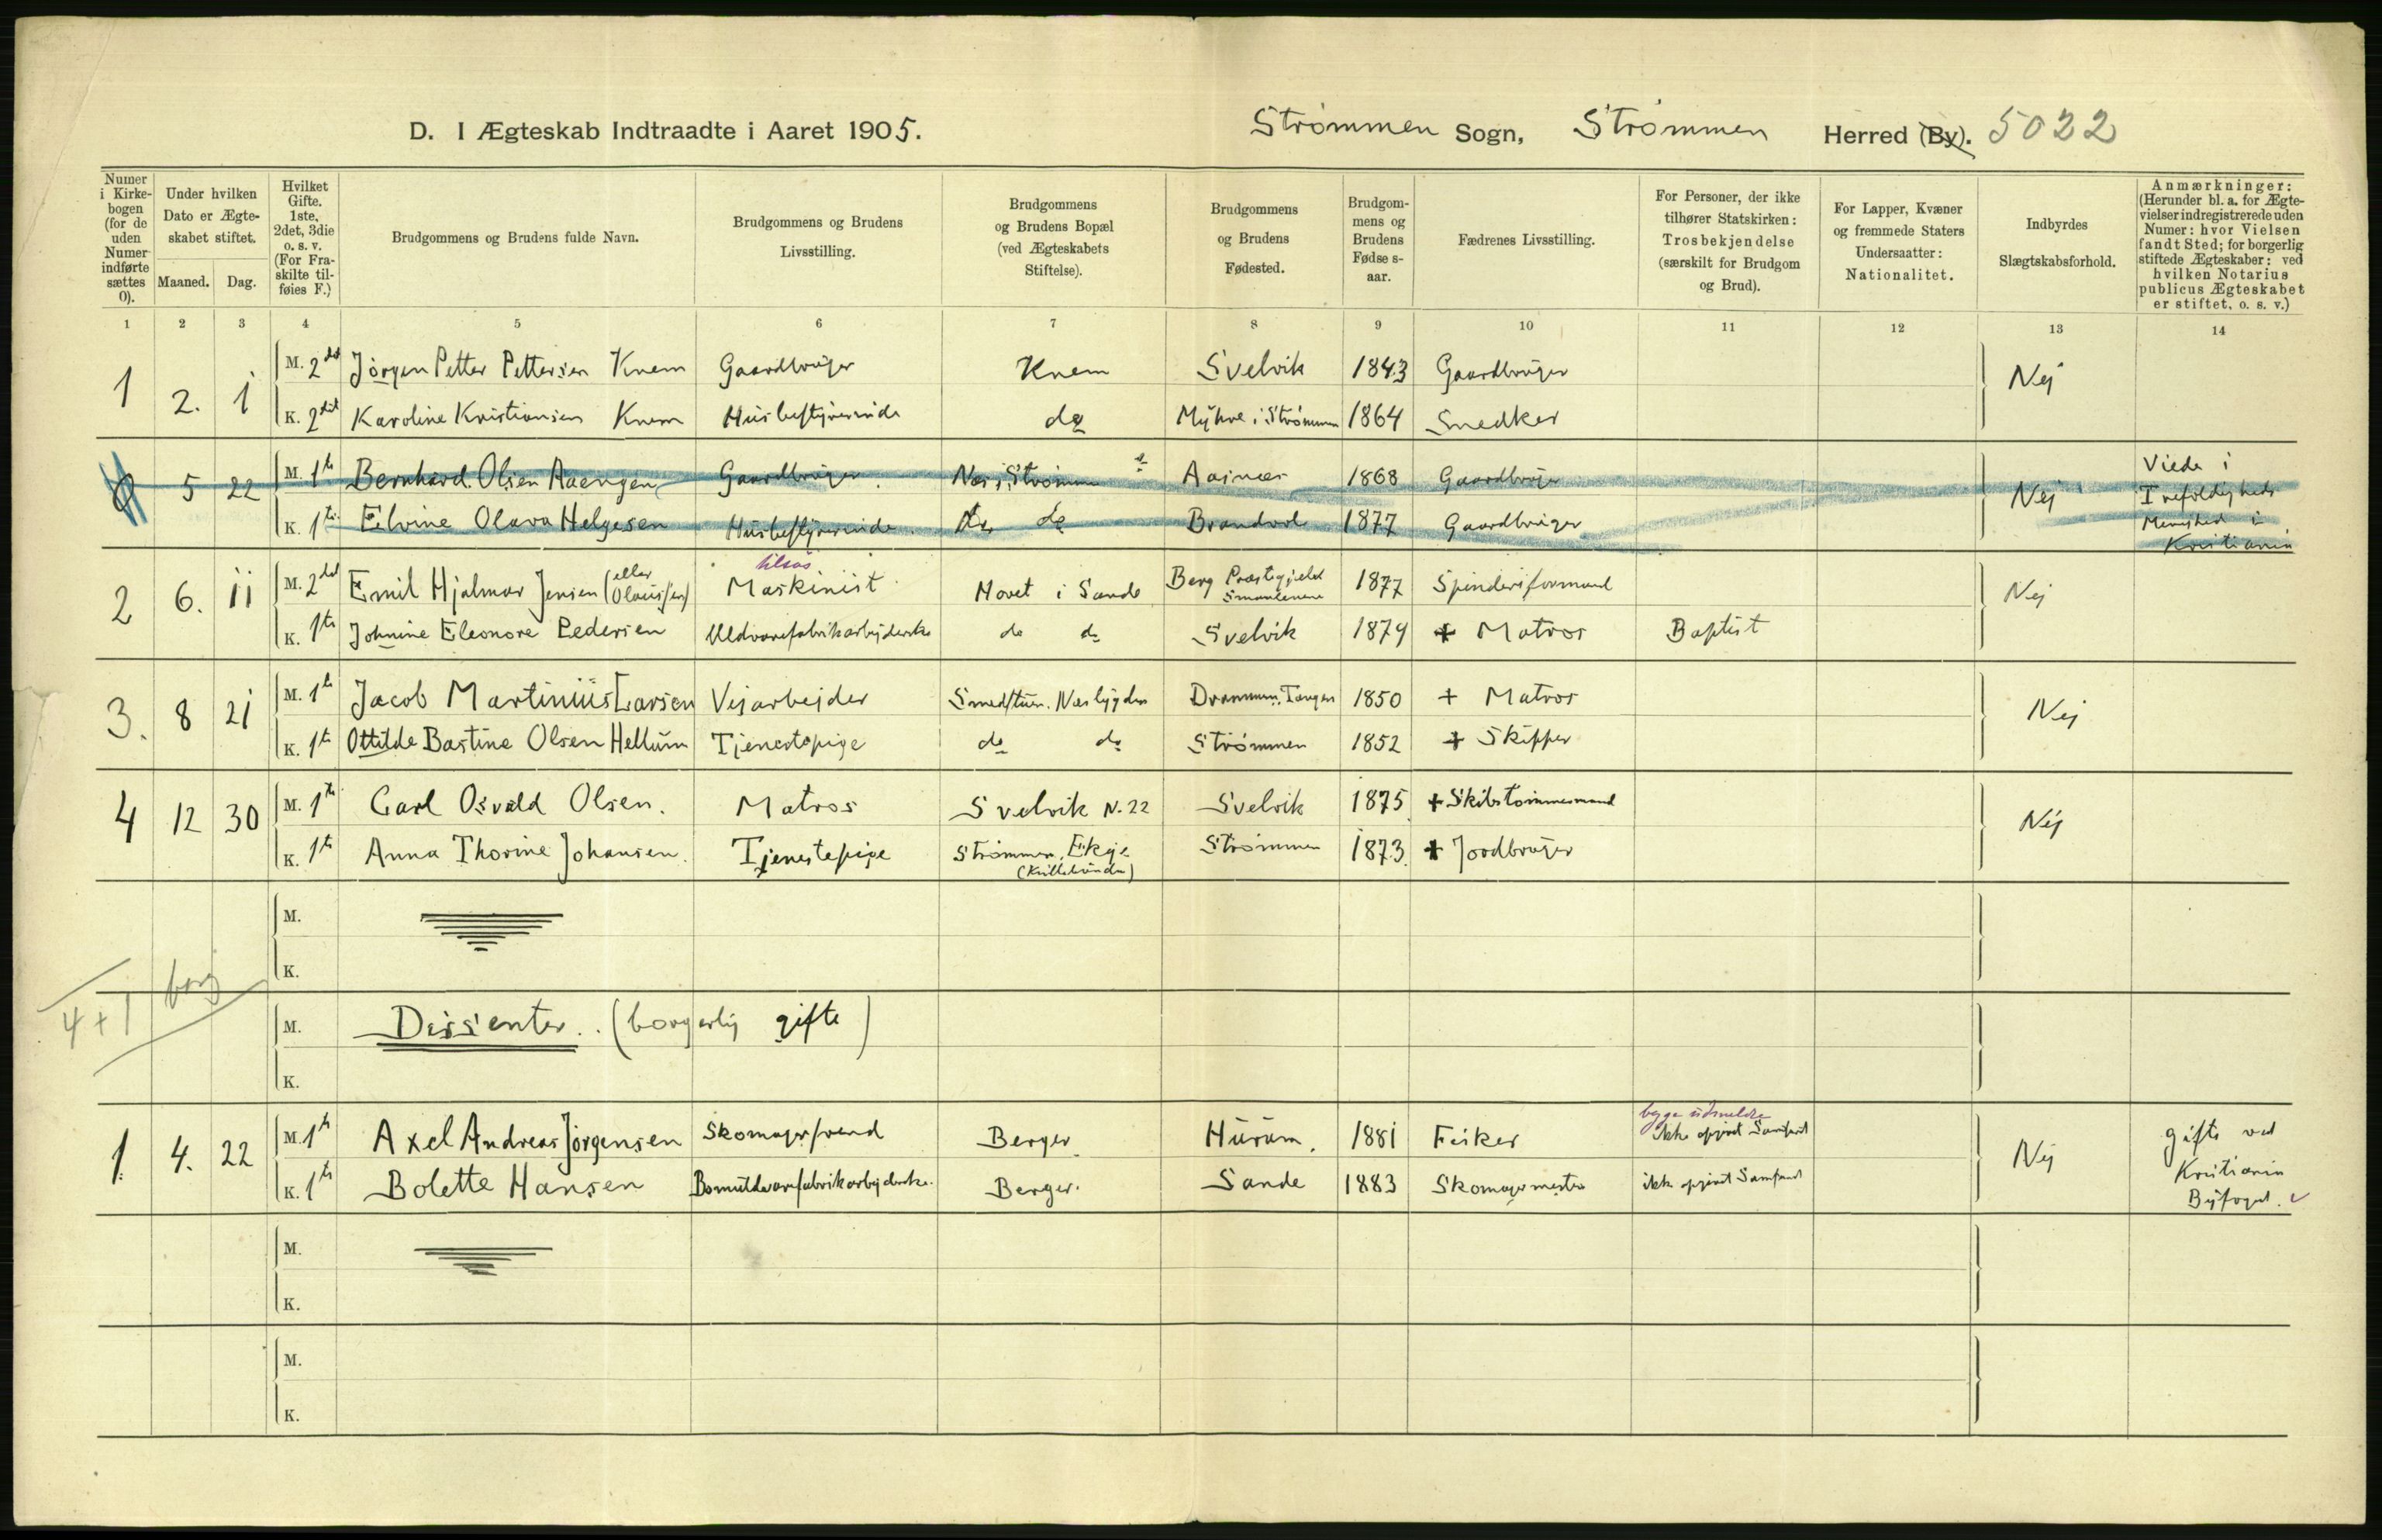 D. I Ægteskab Indtraadte i Aaret 1905. Strömmen Sogn, Strömmen Herred (By). 5022
Numer i Kirkebogen (for de uden Numer indførte sættes 0).
Under hvilken Dato er Ægteskabet stiftet.
Maaned. Dag.
Hvilket Gifte. 1ste, 2det, 3die o. s. v. (For Fraskilte tilføies F.)
Brudgommens og Brudens fulde Navn.
Brudgommens og Brudens Livsstilling.
Brudgommens og Brudens Bopæl (ved Ægteskabets Stiftelse).
Brudgommens og Brudens Fødested.
Brudgommens og Brudens Fødselsaar.
Fædrenes Livsstilling.
For Personer, der ikke tilhører Statskirken: Trosbekjendelse (særskilt for Brudgom og Brud).
For Lapper, Kvæner og fremmede Staters Undersaatter: Nationalitet.
Indbyrdes Slægtskabsforhold.
Anmærkninger: (Herunder bl. a. for Ægtevielser indregistrerede uden Numer: hvor Vielsen fandt Sted; for borgerlig stiftede Ægteskaber: ved hvilken Notarius publicus Ægteskabet er stiftet, o. s. v.)
1 2 3 4 5 6 7 8 9 10 11 12 13 14
1 2. 1 M. 2det Jörgen Petter Pettersen Knem Gaardbrüger Knem Svelvik 1843 Gaardbrüger Nej
K. 2det Karoline Kristiansen Knem Hüsbestyrerinde do Myhre i Strömmen 1864 Snedker
0 5 22 M. 1ste Bernhard Olsen Aaengen Gaardbrüger Nes i Strömmen Aasnes 1868 Gaardbrüger Nej Viede i Trefoldigheds Menighed i Kristiania
K. 1ste Elvine Olava Helgesen Hüsbestyrerinde do do Brandvol 1877 Gaardbrüger
2 6. 11 M. 2det Emil Hjalmar Jensen (eller Olaussen) Maskinist Hovet i Sande Berg Præstegjeld Smaalenene 1877 Spinderiformand Nej
K. 1ste Johnine Eleonore Pedersen Uldvarefabrikarbejderske do do Svelvik 1879 + Matros Baptist
3. 8 21 M. 1ste Jacob Martinius Larsen Vejarbejder Smedstuen. Nesbygden Drammen. Tangen 1850 + Matros Nej
K. 1ste Ottilde Bastine Olsen Hellüm Tjenestepige do do Strömmen 1852 + Skipper
4 12 30 M. 1ste Carl Osvald Olsen. Matros Svelvik N. 22 Svelvik 1875 + Skibstømmermand Nej
K. 1ste Anna Thorine Johansen. Tjenestepige Strömmen, Strömmen 1873. + Jordbrüger
M.
K.
4 + 1 borg
M. Dissenter. (borgerlig gifte)
K.
1. 4. 22 M. 1ste Axel Andreas Jörgensen Skomagersvend Berger. Hürum. 1881 Fisker ikke opgivet Samfund Nej gifte ved Kristiania Byfoged.
K. 1ste Bolette Hansen Bomuldvarefabrikarbejderske. Berger. Sande 1883 Skomagermester ikke opgivet Samfund
M.
K.
M.
K.